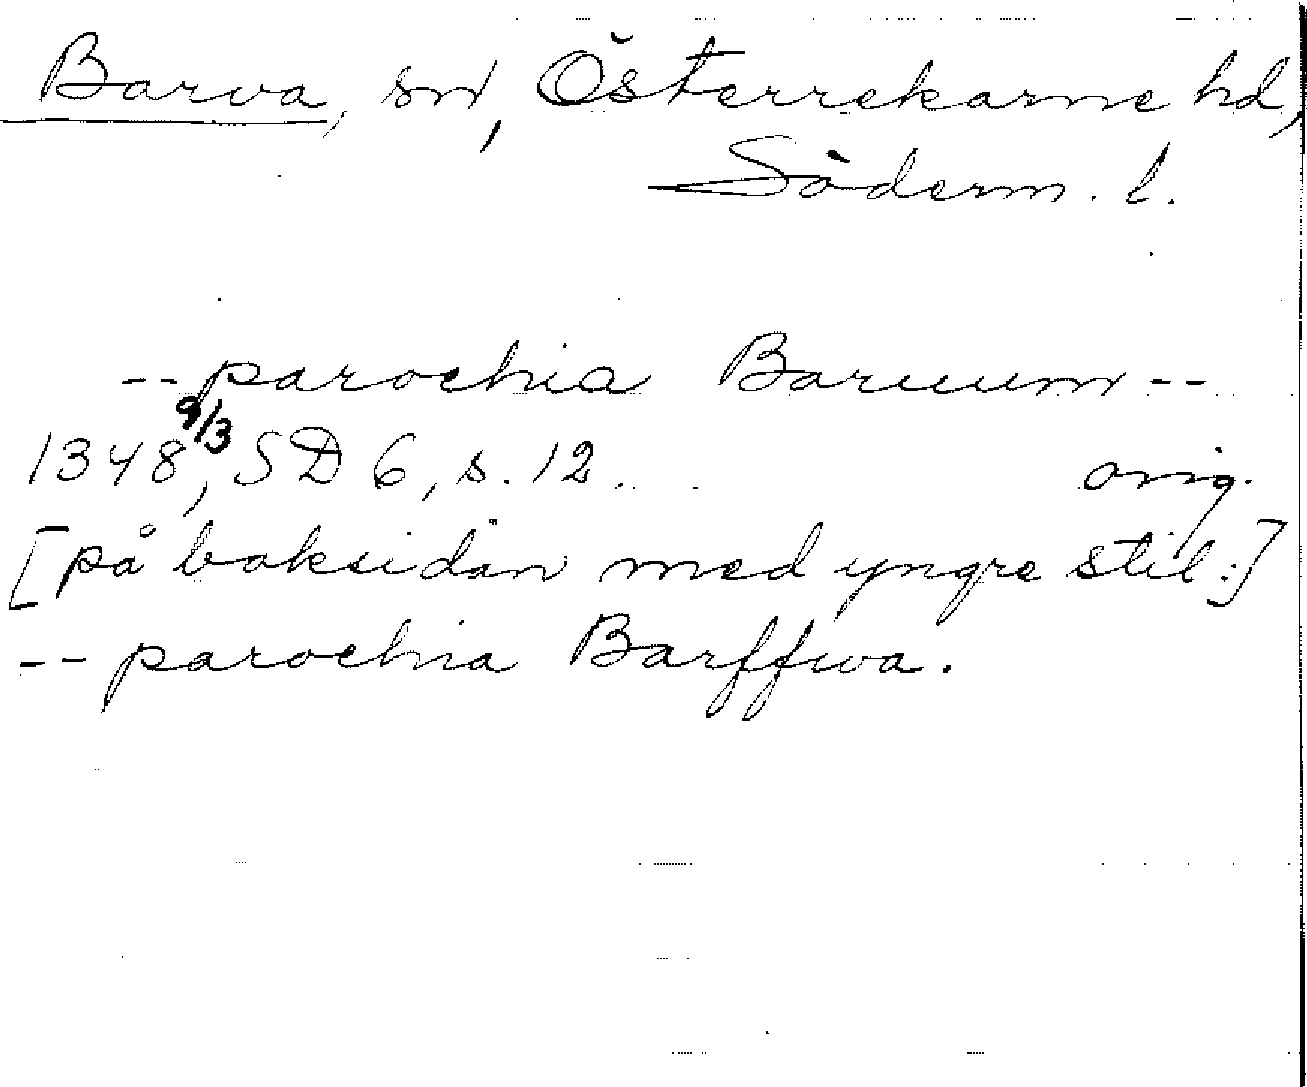 Barva, sn, Österrekarne hd,
Söderm. l.
-- parochia Baruum --
1348 9/3, SD 6, s. 12. orig.
[på baksidan med yngre stil:]
-- parochia Barffwa.